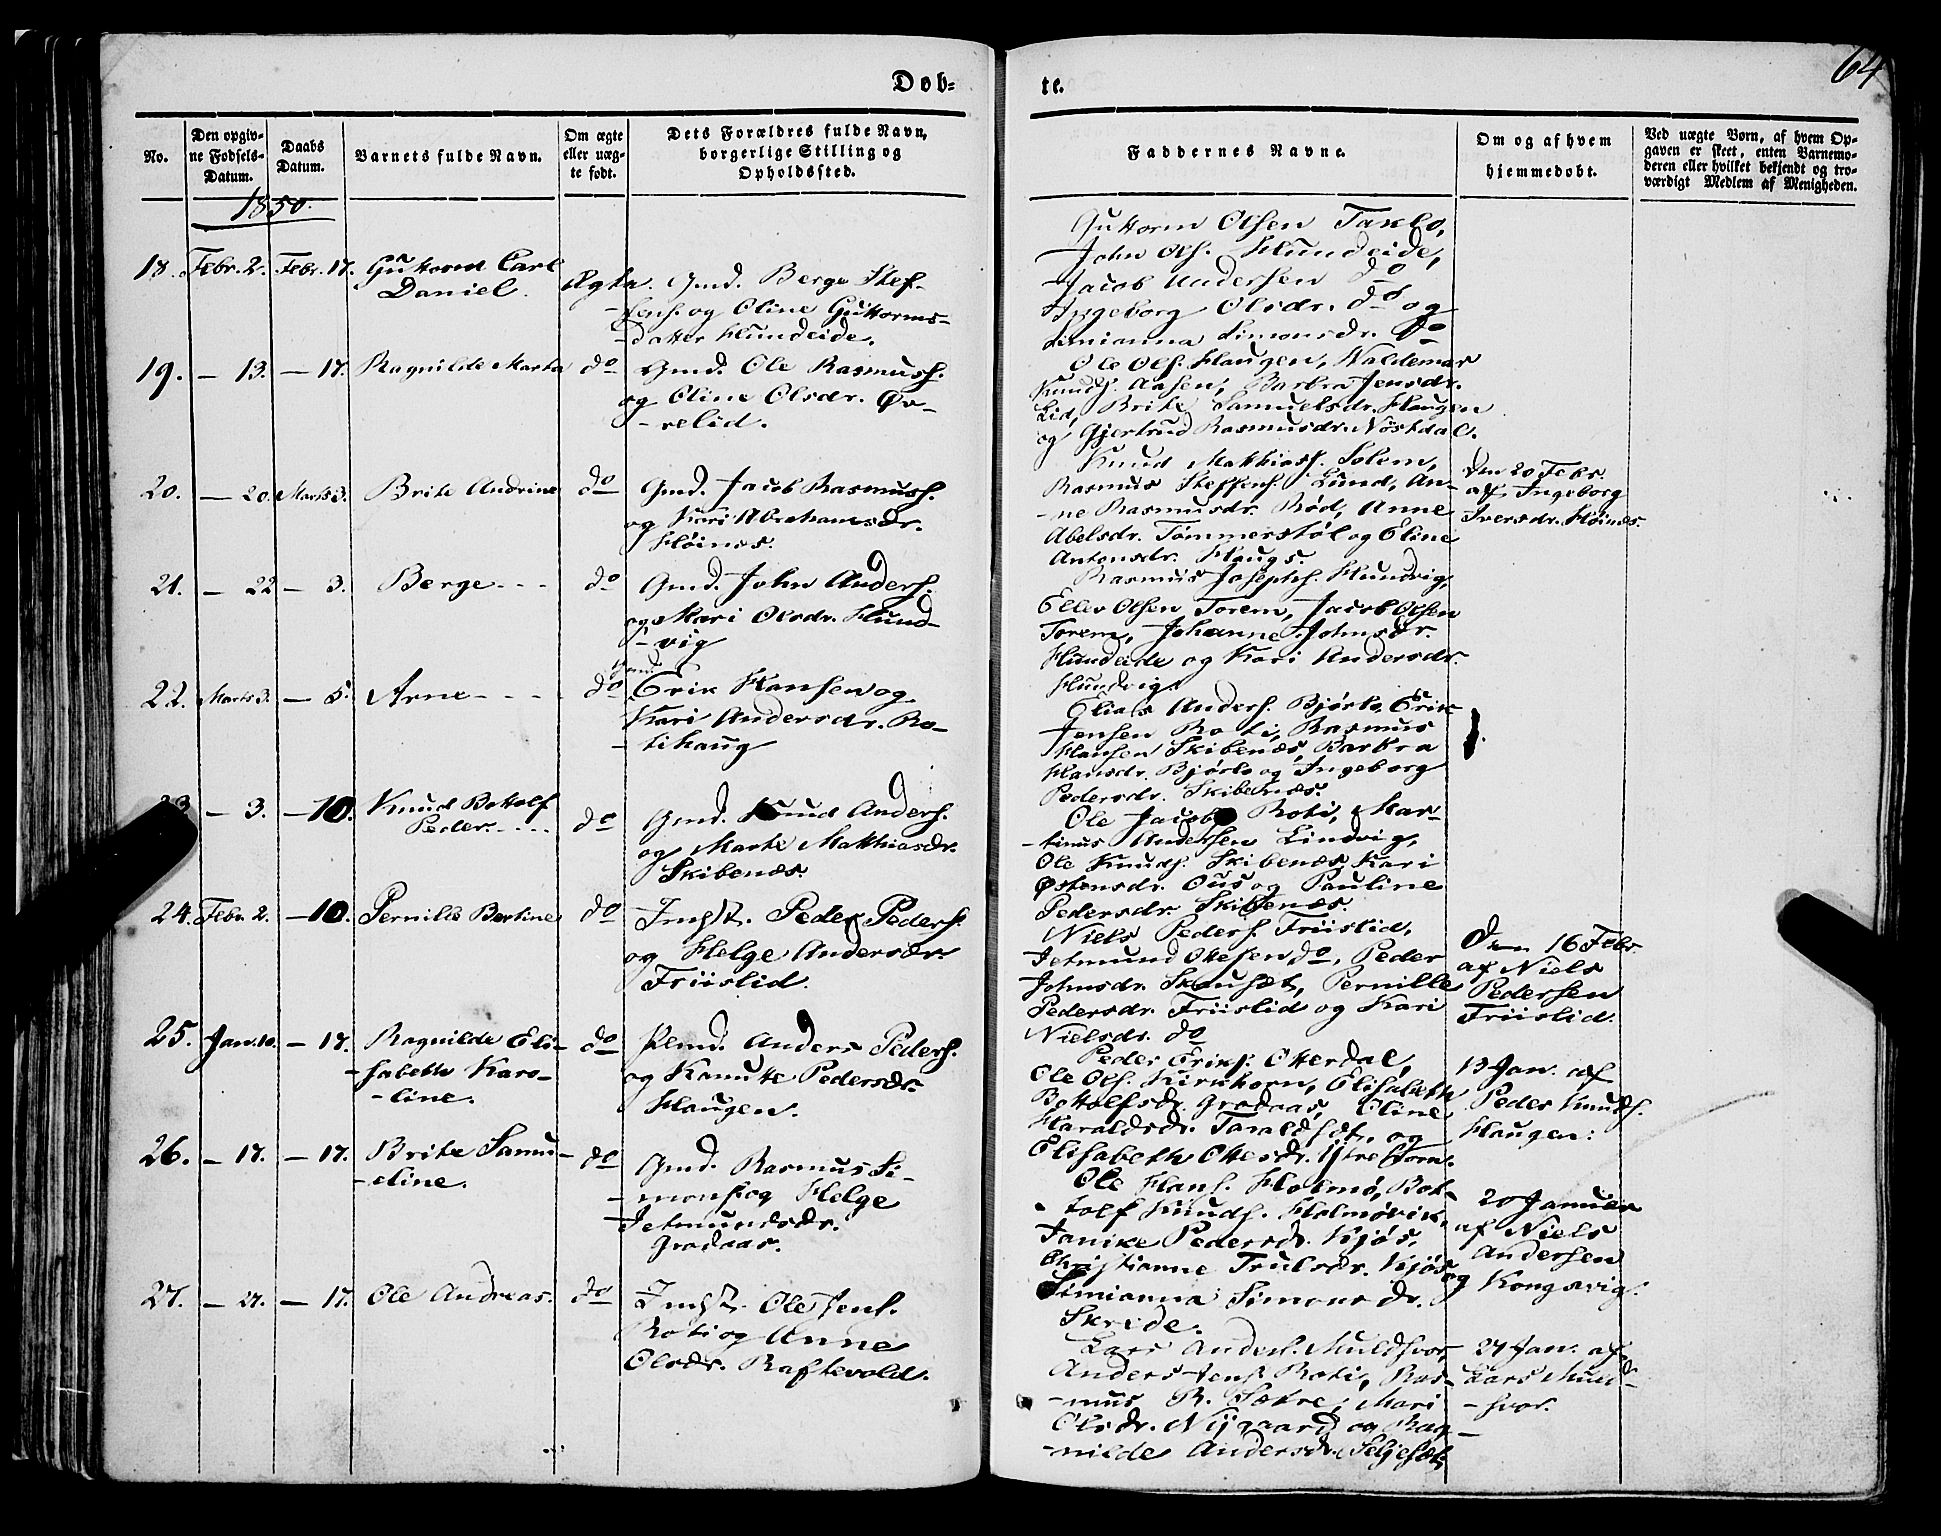 Døb=
te.
64
No.
Den opgiv-
ne Fødsels-
Datum.
Daabs
Datum.
Barnets fulde Navn.
Om ægte
eller uæg-
te født.
Dets Forældres fulde Navn,
borgerlige Stilling og
Opholdssted.
Faddernes Navne.
Om og af hvem
hjemmedøbt.
Ved uægte Børn, af hvem Op-
gaven er skeet, enten Barnemo-
deren eller hvilket bekjendt og tro-
værdigt Medlem af Menigheden.
1850.
18. Febr. 2. Febr. 17. Guttorm Carl
Daniel.
Ægte. Gmd. Berge Stef-
-fens. og Oline Guttorms-
-datter Hundeide.
Guttorm Olsen Taklo,
John Ols. Hundeide,
Jacob Andersen do
Ingeborg Olsdr. do og
Simianna Simonsdr. do
19. — 13. — 17. Ragnilde Marta do Gmd. Ole Rasmuss.
og Oline Olsdr. Øv-
-relid.
Ole Ols. Haugen, Waldemar
Knuds. Aasen, Barbra Jensdr.
Lid, Brite Samuelsdr. Haugen
og Gjertrud Rasmusdr. Nøstdal.
20. — 20. Marts 3. Brite Andrine do Gmd. Jacob Rasmuss.
og Kari Abrahamsdr.
Høines.
Knud Matthiass. Solem,
Rasmus Steffens. Lund, An-
-ne Rasmusdr. Rød, Anne
Abelsdr. Tømmerstøl og Eline
Antonsdr. Haugs.
Den 20 Febr.
af Ingeborg
Iversdr. Høines.
21. — 22 — 3. Berge - - - do Gmd. John Anders.
og Mari Olsdr. Hund-
-vig
Rasmus Josephs. Hundvig,
Ellev Olsen Torem, Jacob Olsen
Torem, Johanne Johnsdr.
Hundeide og Kari Andersdr.
Hundvig.
22. Marts 3. — 5. Arne - - - - do Gmd.
Erik Hansen og
Kari Andersdr. Ro-
-tihaug
Elias Anders. Bjørlo, Erik
Jensen Roti, Rasmus
Hansen Skibenæs, Barbra
Hansdr. Bjørlo og Ingeborg
Pedersdr. Skibenæs.
23 — 3. — 10. Knud Bottolf
Peder. - - - - do Gmd. Knud Anders.
og Marte Matthiasdr.
Skibenæs.
Ole Jacobs. Roti, Mar-
-tinus Andersen Lindvig,
Ole Knuds. Skibenæs Kari
Østensdr. Ous og Pauline
Pedersdr. Skibenæs.
24. Febr. 2. — 10. Pernille Bertine do Indst. Peder Peders.
og Helge Andersdr.
Friislid.
Niels Peders. Friislid,
Jetmund Ottesen do, Peder
Johnsdr. Skausæt, Pernille
Pedersdr. Friislid og Kari
Nielsdr. do
Den 16 Febr.
af Niels
Pedersen
Friislid.
25. Jan. 10. — 17. Ragnilde Eli-
-sabeth Karo-
-line.
do Plmd. Anders Peders.
og Kanutte Pedersdr.
Haugen.
Peder Eriks. Otterdal,
Ole Ols. Kirkhorn, Elisabeth
Bottolfsdr. Grodaas, Oline
Haraldsdr. Taraldset, og
Elisabeth Ottersdr. Ytrehorn.
13 Jan. af
Peder Knuds.
Haugen:
26. — 17. — 17. Brite Samu-
-eline.
do Gmd. Rasmus Si-
-mons. og Helge
Jetmundsdr.
Grodaas.
Ole Hans. Holmø, Bot-
-tolf Knuds. Holmøvik,
Janike Pedersdr. Kjøs,
Christianne Trulsdr. Kjøs og
Simianna Simonsdr.
Skride.
20 Januar
af Niels
Andersen
Kongsvig.
27. — 27. — 17. Ole Andreas. do Indst. Ole Jens.
Roti og Anne
Olsdr. Raftevold.
Lars Anders. Muldsvor,
Anders Jens. Roti, Ras-
-mus R. Sætre, Mari
Olsdr. Nygaard og Rag-
-nilde Andersdr. Seljeset,
27 Jan. af
Lars Muld-
-svor.